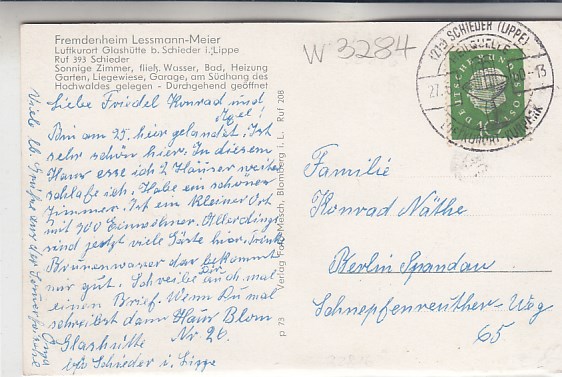 Fremdenheim Lessmann-Meier
Luftkurort Glashütte b. Schieder i. Lippe
Ruf 393 Schieder
Sonnige Zimmer, fließ. Wasser, Bad, Heizung
Garten, Liegewiese, Garage, am Südhang des
Hochwaldes gelegen - Durchgehend geöffnet
W 3284
(21a) SCHIEDER (LIPPE)
27.
60-13
DEUTSCHE BUNDESPOST
10
Liebe Friedel Konrad und
Bin am 25. hier gelandet. Ist
sehr schön hier. In diesem
Haus esse ich 2 Häuser weiter
schlafe ich. Habe ein schönes
Zimmer. Ist ein kleiner Ort
mit 300 Einwohner. Allerdings
sind jetzt viele Gäste hier. Trinke
Brunnenwasser das bekommt
mir gut. Schreibe Dir auch mal
einen Brief. Wenn Du mal
schreibst dann Haus Blom
Glashütte Nr 26.
b/s Schieder i. Lippe
Viele lb. Grüße aus der
p 73 Verlag Foto-Mesch, Blomberg i. L. Ruf 208
Familie
Konrad Näthe
Berlin Spandau
Schnepfenreuther-Weg
65